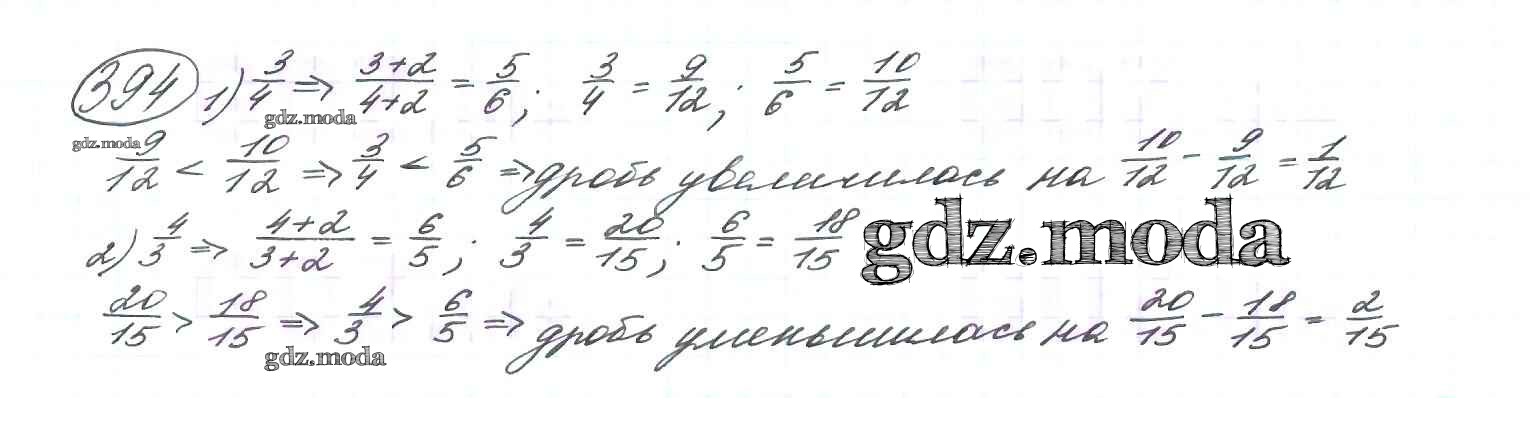 394 1) 3/4 ⇒ (3+2)/(4+2) = 5/6; 3/4 = 9/12; 5/6 = 10/12
gdz.moda
gdz.moda
9/12 < 10/12 ⇒ 3/4 < 5/6 ⇒ дробь увеличилась на 10/12 - 9/12 = 1/12
2) 4/3 ⇒ (4+2)/(3+2) = 6/5; 4/3 = 20/15; 6/5 = 18/15
gdz.moda
20/15 > 18/15 ⇒ 4/3 > 6/5 ⇒ дробь уменьшилась на 20/15 - 18/15 = 2/15
gdz.moda